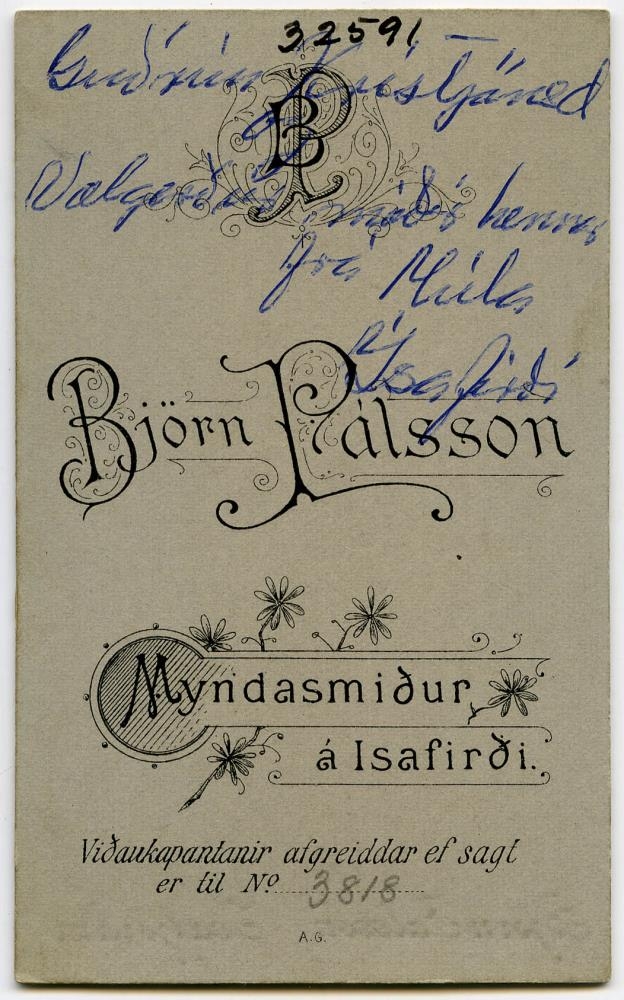 32591
Guðrún Kristjánsd
BP
Valgerður móðir hennar
frá Múla
Ísafirði
Björn Pálsson
Myndasmiður
á Isafirði.
Viðaukapantanir afgreiddar ef sagt
er til Nº 3818
A.G.